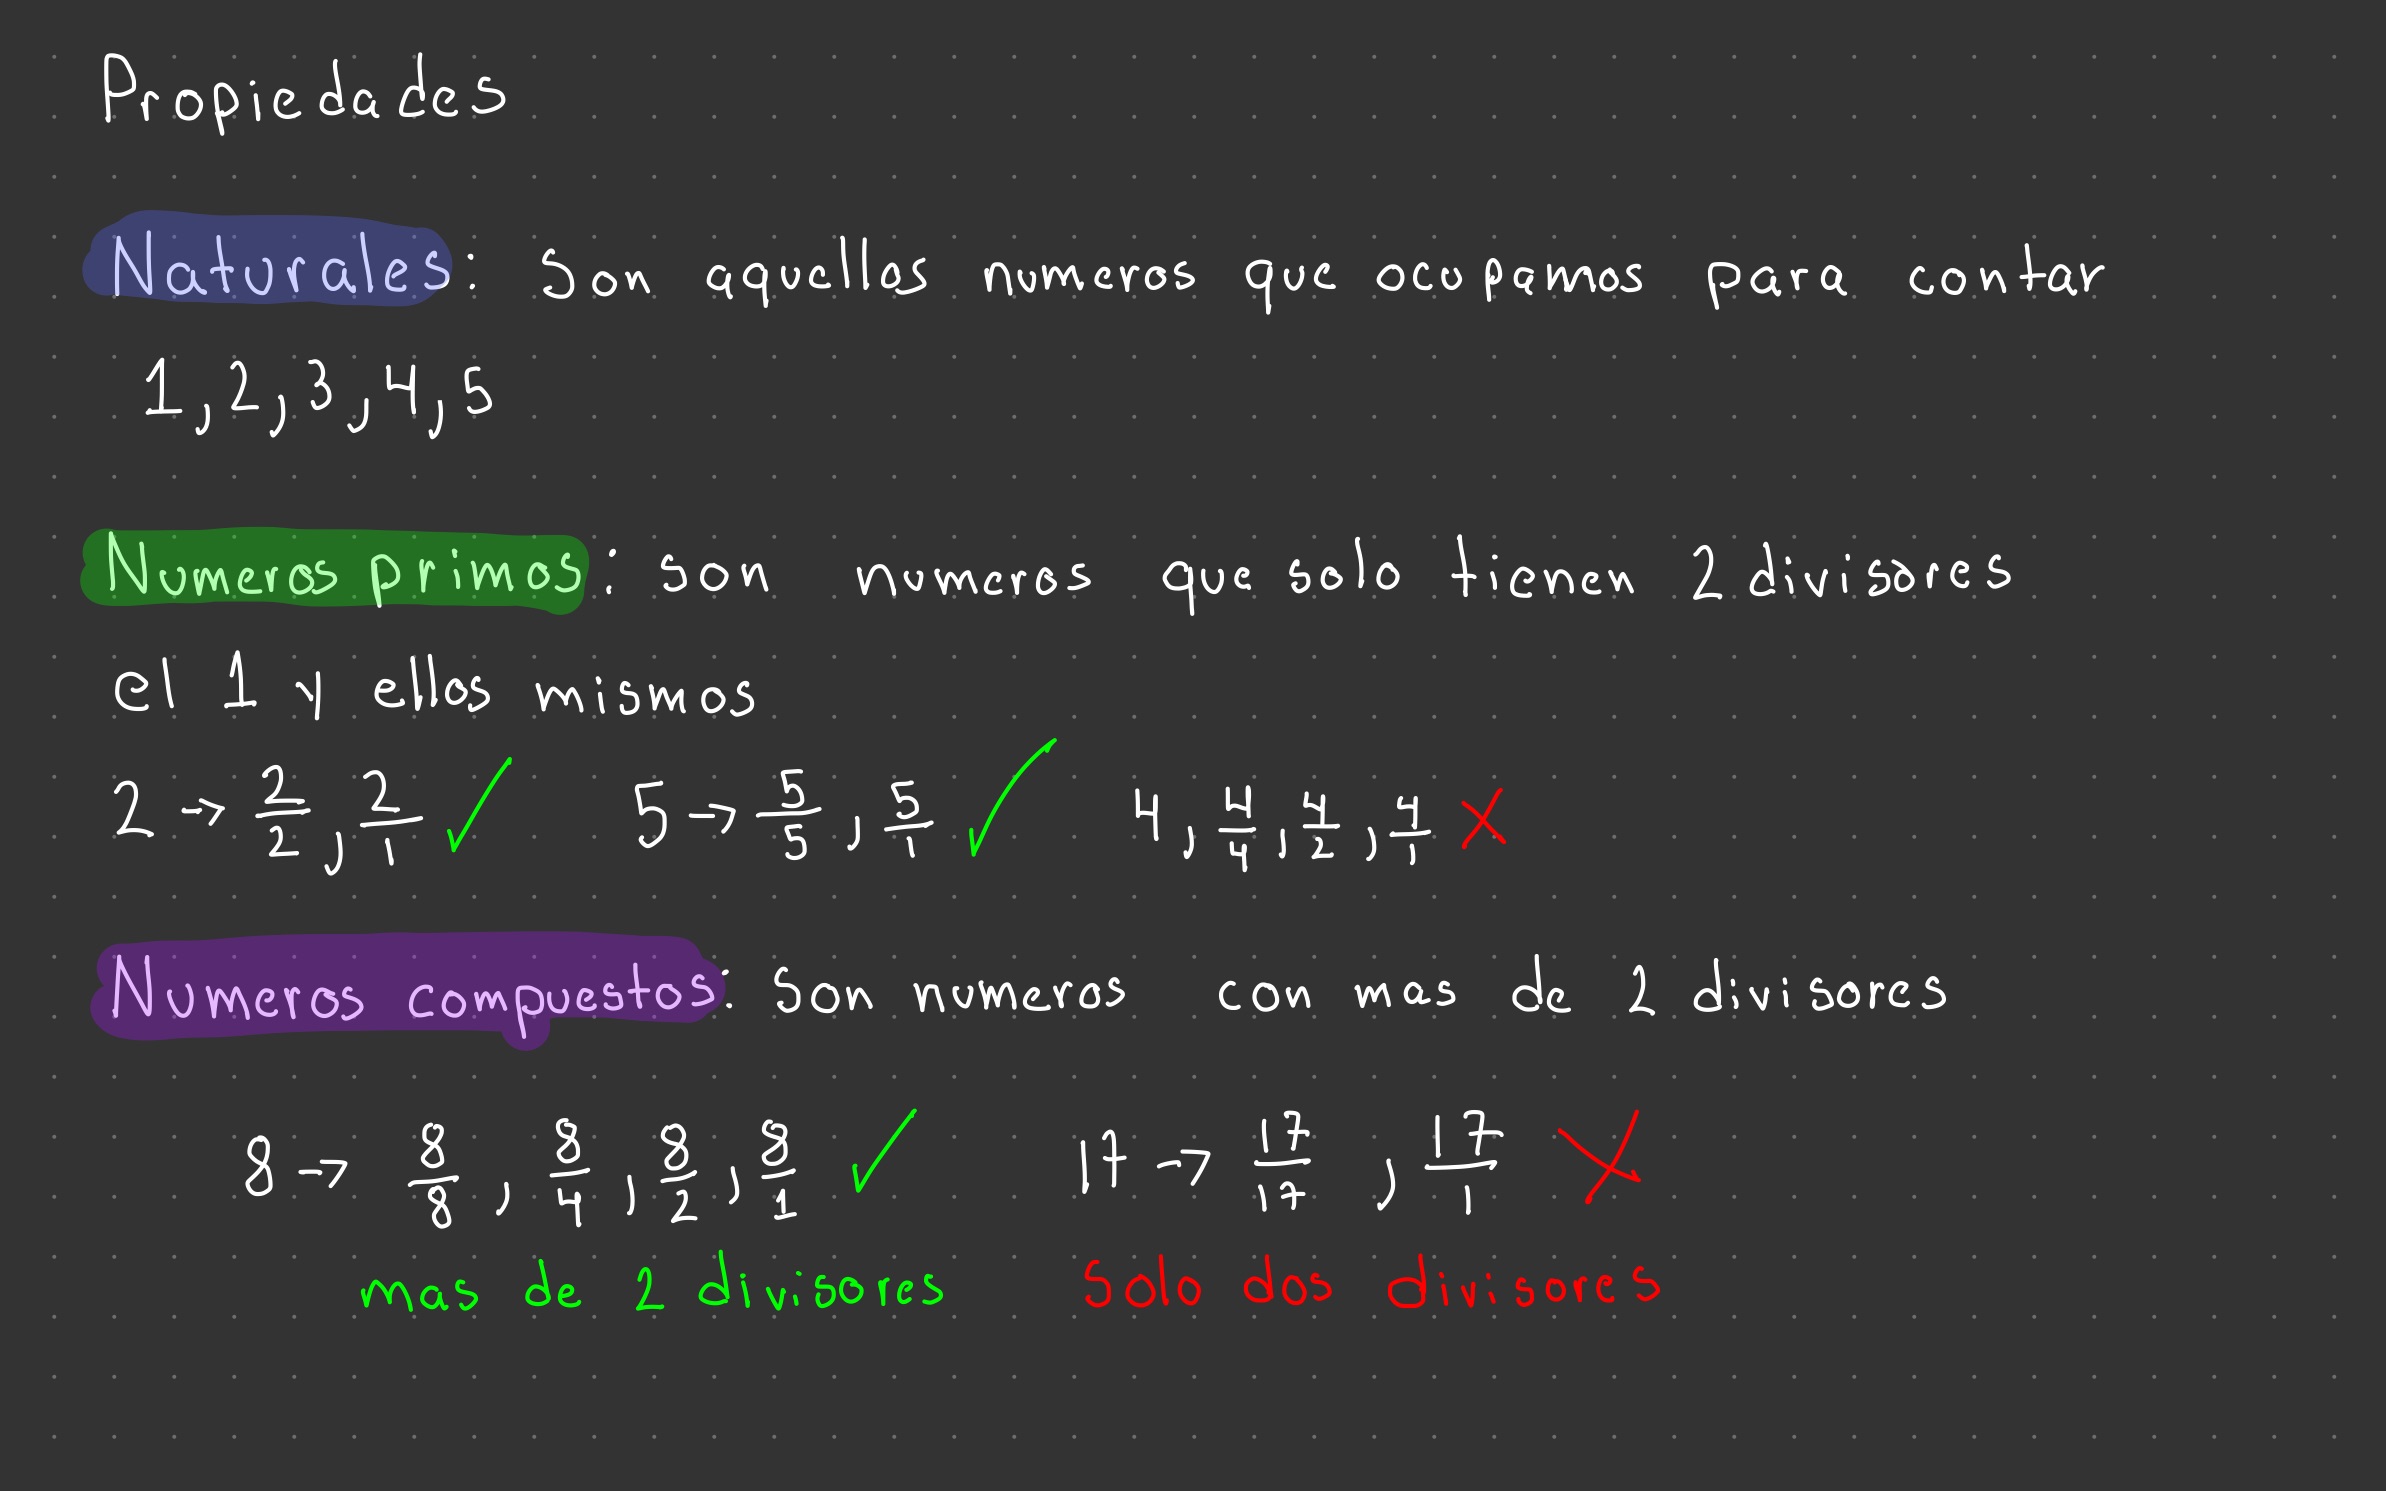 Propiedades
Naturales: Son aquellos numeros que ocupamos para contar
1, 2, 3, 4, 5
Numeros primos: son numeros que solo tienen 2 divisores
el 1 y ellos mismos
2 → 2/2, 2/1 ✓ 5 → 5/5, 5/1 ✓ 4, 4/4, 4/2, 4/1 ✗
Numeros compuestos: Son numeros con mas de 2 divisores
8 → 8/8, 8/4, 8/2, 8/1 ✓ 17 → 17/17, 17/1 ✗
mas de 2 divisores Solo dos divisores